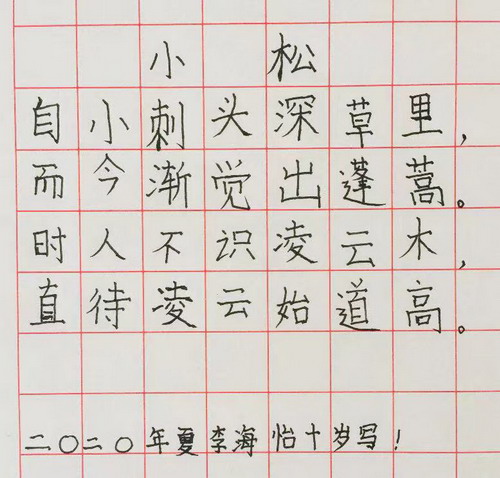 小松
自小刺头深草里，
而今渐觉出蓬蒿。
时人不识凌云木，
直待凌云始道高。
二〇二〇年夏李海怡十岁写！